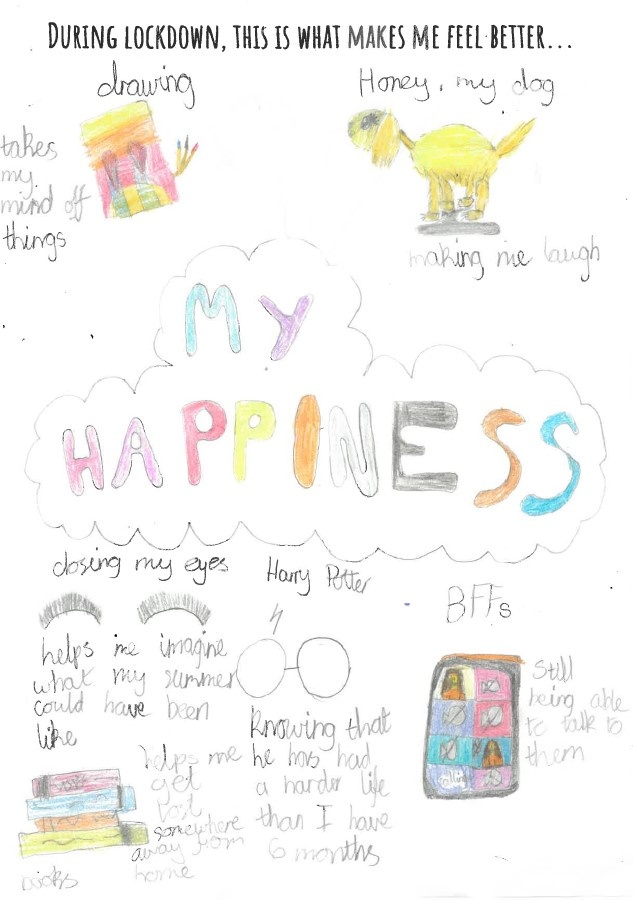 DURING LOCKDOWN, THIS IS WHAT MAKES ME FEEL BETTER...
drawing
takes
my
mind off
things
Honey, my dog
making me laugh
MY
HAPPINESS
closing my eyes
helps me imagine
what my summer
could have been
like
Harry Potter
knowing that
he has had
a harder life
than I have
6 months
BFFs
Still
being able
to talk to
them
helps me
get
lost
somewhere
away from
home
books